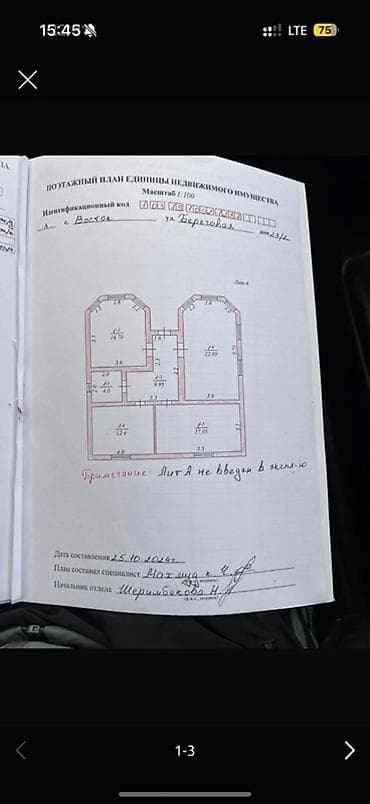 15:45
LTE 75
ПОЭТАЖНЫЙ ПЛАН ЕДИНИЦЫ НЕДВИЖИМОГО ИМУЩЕСТВА
Масштаб 1:100
Идентификационный код
с Восток ул Береговая
Лит-А
1.8
1.8
14.79
1.6
22.89
3.6
2.0
4.0
8.95
3.3
3.6
12.4
17.05
4.0
5.5
Примечание: Лит А не введен в экспл-ю
Дата составления 25.10.2024г
План составил специалист Махмуд к. Ч.
Начальник отдела Шеримбекова Н.
(ф.и.о., подпись)
1-3